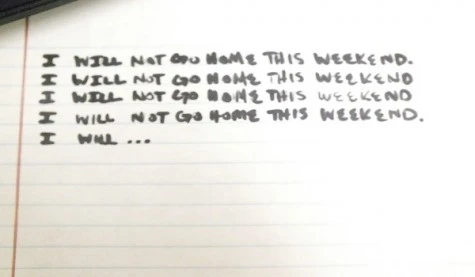 I WILL NOT GO HOME THIS WEEKEND.
I WILL NOT GO HOME THIS WEEKEND
I WILL NOT GO HOME THIS WEEKEND
I WILL NOT GO HOME THIS WEEKEND.
I WILL ...